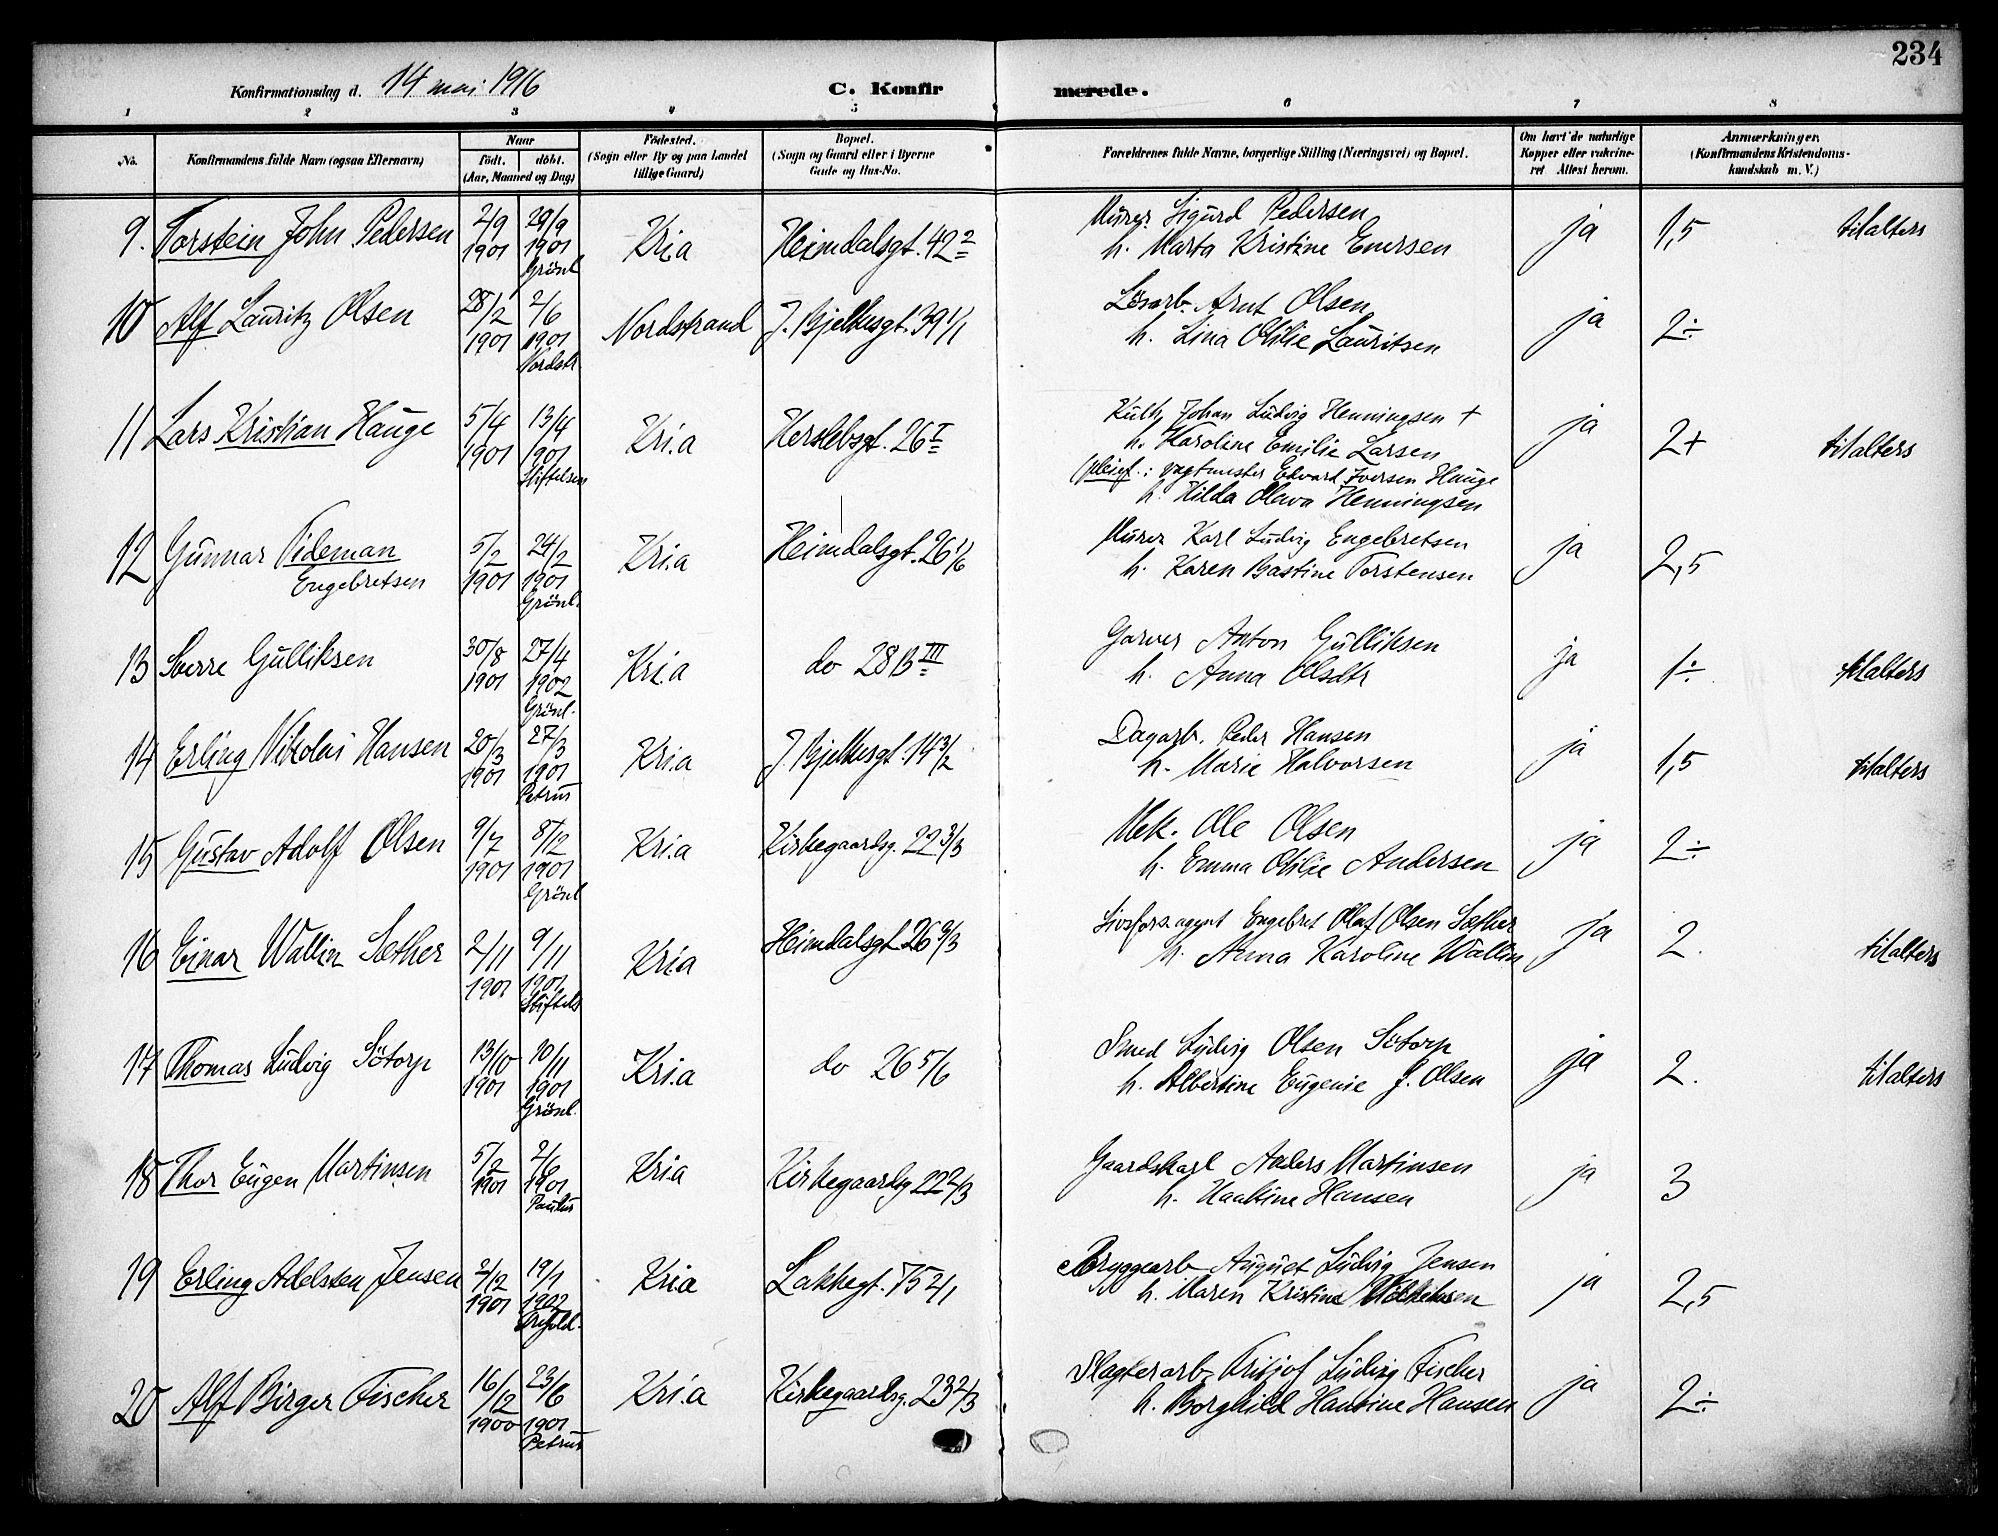 234
Konfirmationsdag d. 14 mai 1916
C. Konfirmerede.
1 2 3 4 5 6 7 8
No.
Konfirmandens fulde Navn (ogsaa Efternavn)
Naar
født. døbt.
(Aar, Maaned og Dag)
Fødested.
(Sogn eller By og paa Landet
tillige Gaard)
Bopæl.
(Sogn og Gaard eller i Byerne
Gade og Hus-No.
Forældrenes fulde Navne, borgerlige Stilling (Næringsvei) og Bopæl.
Om havt de naturlige
Kopper eller vakcine-
ret Attest herom.
Anmærkninger.
(Konfirmandens Kristendoms-
kundskab m. V.)
9. Torstein John Pedersen 2/9 1901 29/9 1901 Grönl Kr.a Heimdalsgt. 42 2 Murer Sigurd Pedersen ja 1,5 til alters
h. Marta Kristine Enersen
10 Alf Lauritz Olsen 28/2 1901 2/6 1901 Nordstr. Nordstrand J. Bjelkesgt. 39 1/1 Lösarb. Arnt Olsen ja 2÷
h. Lina Otilie Lauritsen
11 Lars Kristian Hauge 5/4 1901 13/4 1901 Stiftelsen Kr.a Herslebsgt. 26 I Johan Ludvig Henningsen + ja 2+ til alters
h. Karoline Emilie Larsen
(pleief.: vagtmester Edvard Iversen Hauge
h. Hilda Olava Henningsen
12 Gunnar Tideman 5/2 1901 24/2 1901 Grönl. Kr.a Heimdalsgt. 26 1/6 Murer Karl Ludvig Engebretsen ja 2,5
Engebretsen h. Karen Bastine Torstensen
13 Sverre Gulliksen 30/8 1901 27/4 1902 Grönl. Kr.a do 28 B III Garver Anton Gulliksen ja 1÷ til alters
h. Anna Olsdtr
14 Erling Nikolai Hansen 20/3 1901 27/3 1901 Petrus Kr.a J. Bjelkesgt. 14 3/2 Dagarb. Peder Hansen ja 1,5 til alters
h. Marie Halvorsen
15 Gustav Adolf Olsen 9/7 1901 8/12 1901 Grönl Kr.a Kirkegaardsg. 22 3/3 Mek. Ole Olsen ja 2÷
h. Emma Otilie Andersen
16 Einar Wallin Sæther 2/11 1901 9/11 1901 Stiftels Kr.a Heimdalsgt 26 9/3 Livsfors.agent Engebret Olaf Olsen Sæther ja 2. til alters
h. Anna Karoline Wallin
17 Thomas Ludvig Sötorp 13/10 1901 10/11 1901 Grönl. Kr.a do 26 5/6 Smed Ludvig Olsen Sötorp ja 2. til alters
h. Albertine Eugenie J. Olsen
18 Thor Eugen Martinsen 5/2 1901 2/6 1901 Paulus Kr.a Kirkegaardsg 22 2/3 Gaardskarl Anders Martinsen ja 3
h. Hansen
19 Erling Adelsten Jensen 2/12 1901 19/1 1902 Kr.a Lakkegt. 75 2/1 Bryggearb August Ludvig Jensen ja 2,5
h. Maren Kristine
20 Alf Birger Fischer 16/12 1900 23/6 1901 Petrus Kr.a Kirkegaardsg. 23 2/3 Slagterarb. Fritjof Ludvig Fischer ja 2÷
h. Borghild Hansine Hansen